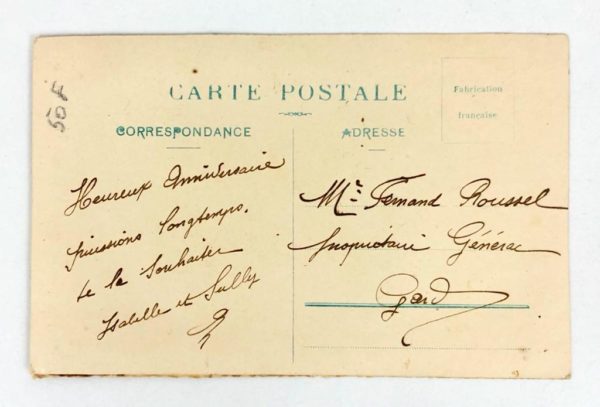 50 F
CARTE POSTALE
CORRESPONDANCE
ADRESSE
Fabrication
française
Heureux Anniversaire
puissions longtemps
te le souhaiter
Isabelle et Sully
Mr. Fernand Roussel
propriétaire Générac
Gard